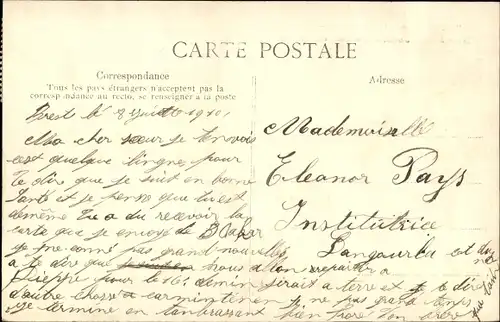 CARTE POSTALE
Correspondance
Tous les pays étrangers n'acceptent pas la
correspondance au recto, se renseigner à la poste
Adresse
Brest le 8 Juillet 1910,
Ma cher sœur je tenvois
cest quelque lingne, pour
te dire que je suit en bonne
santé et je pense que tu est
demême Tu a du recevoir la
carte que je envoyé de
pas grand nouvelles
a te dire que nous a lon
Dieppe pour le 16, demin sirait a terre et a te dire
dautre chose je pas grand temps
je termine en tanbrassant bien fore ton
Mademoiselle
Eleanor Pays
Institutrice
Langourla